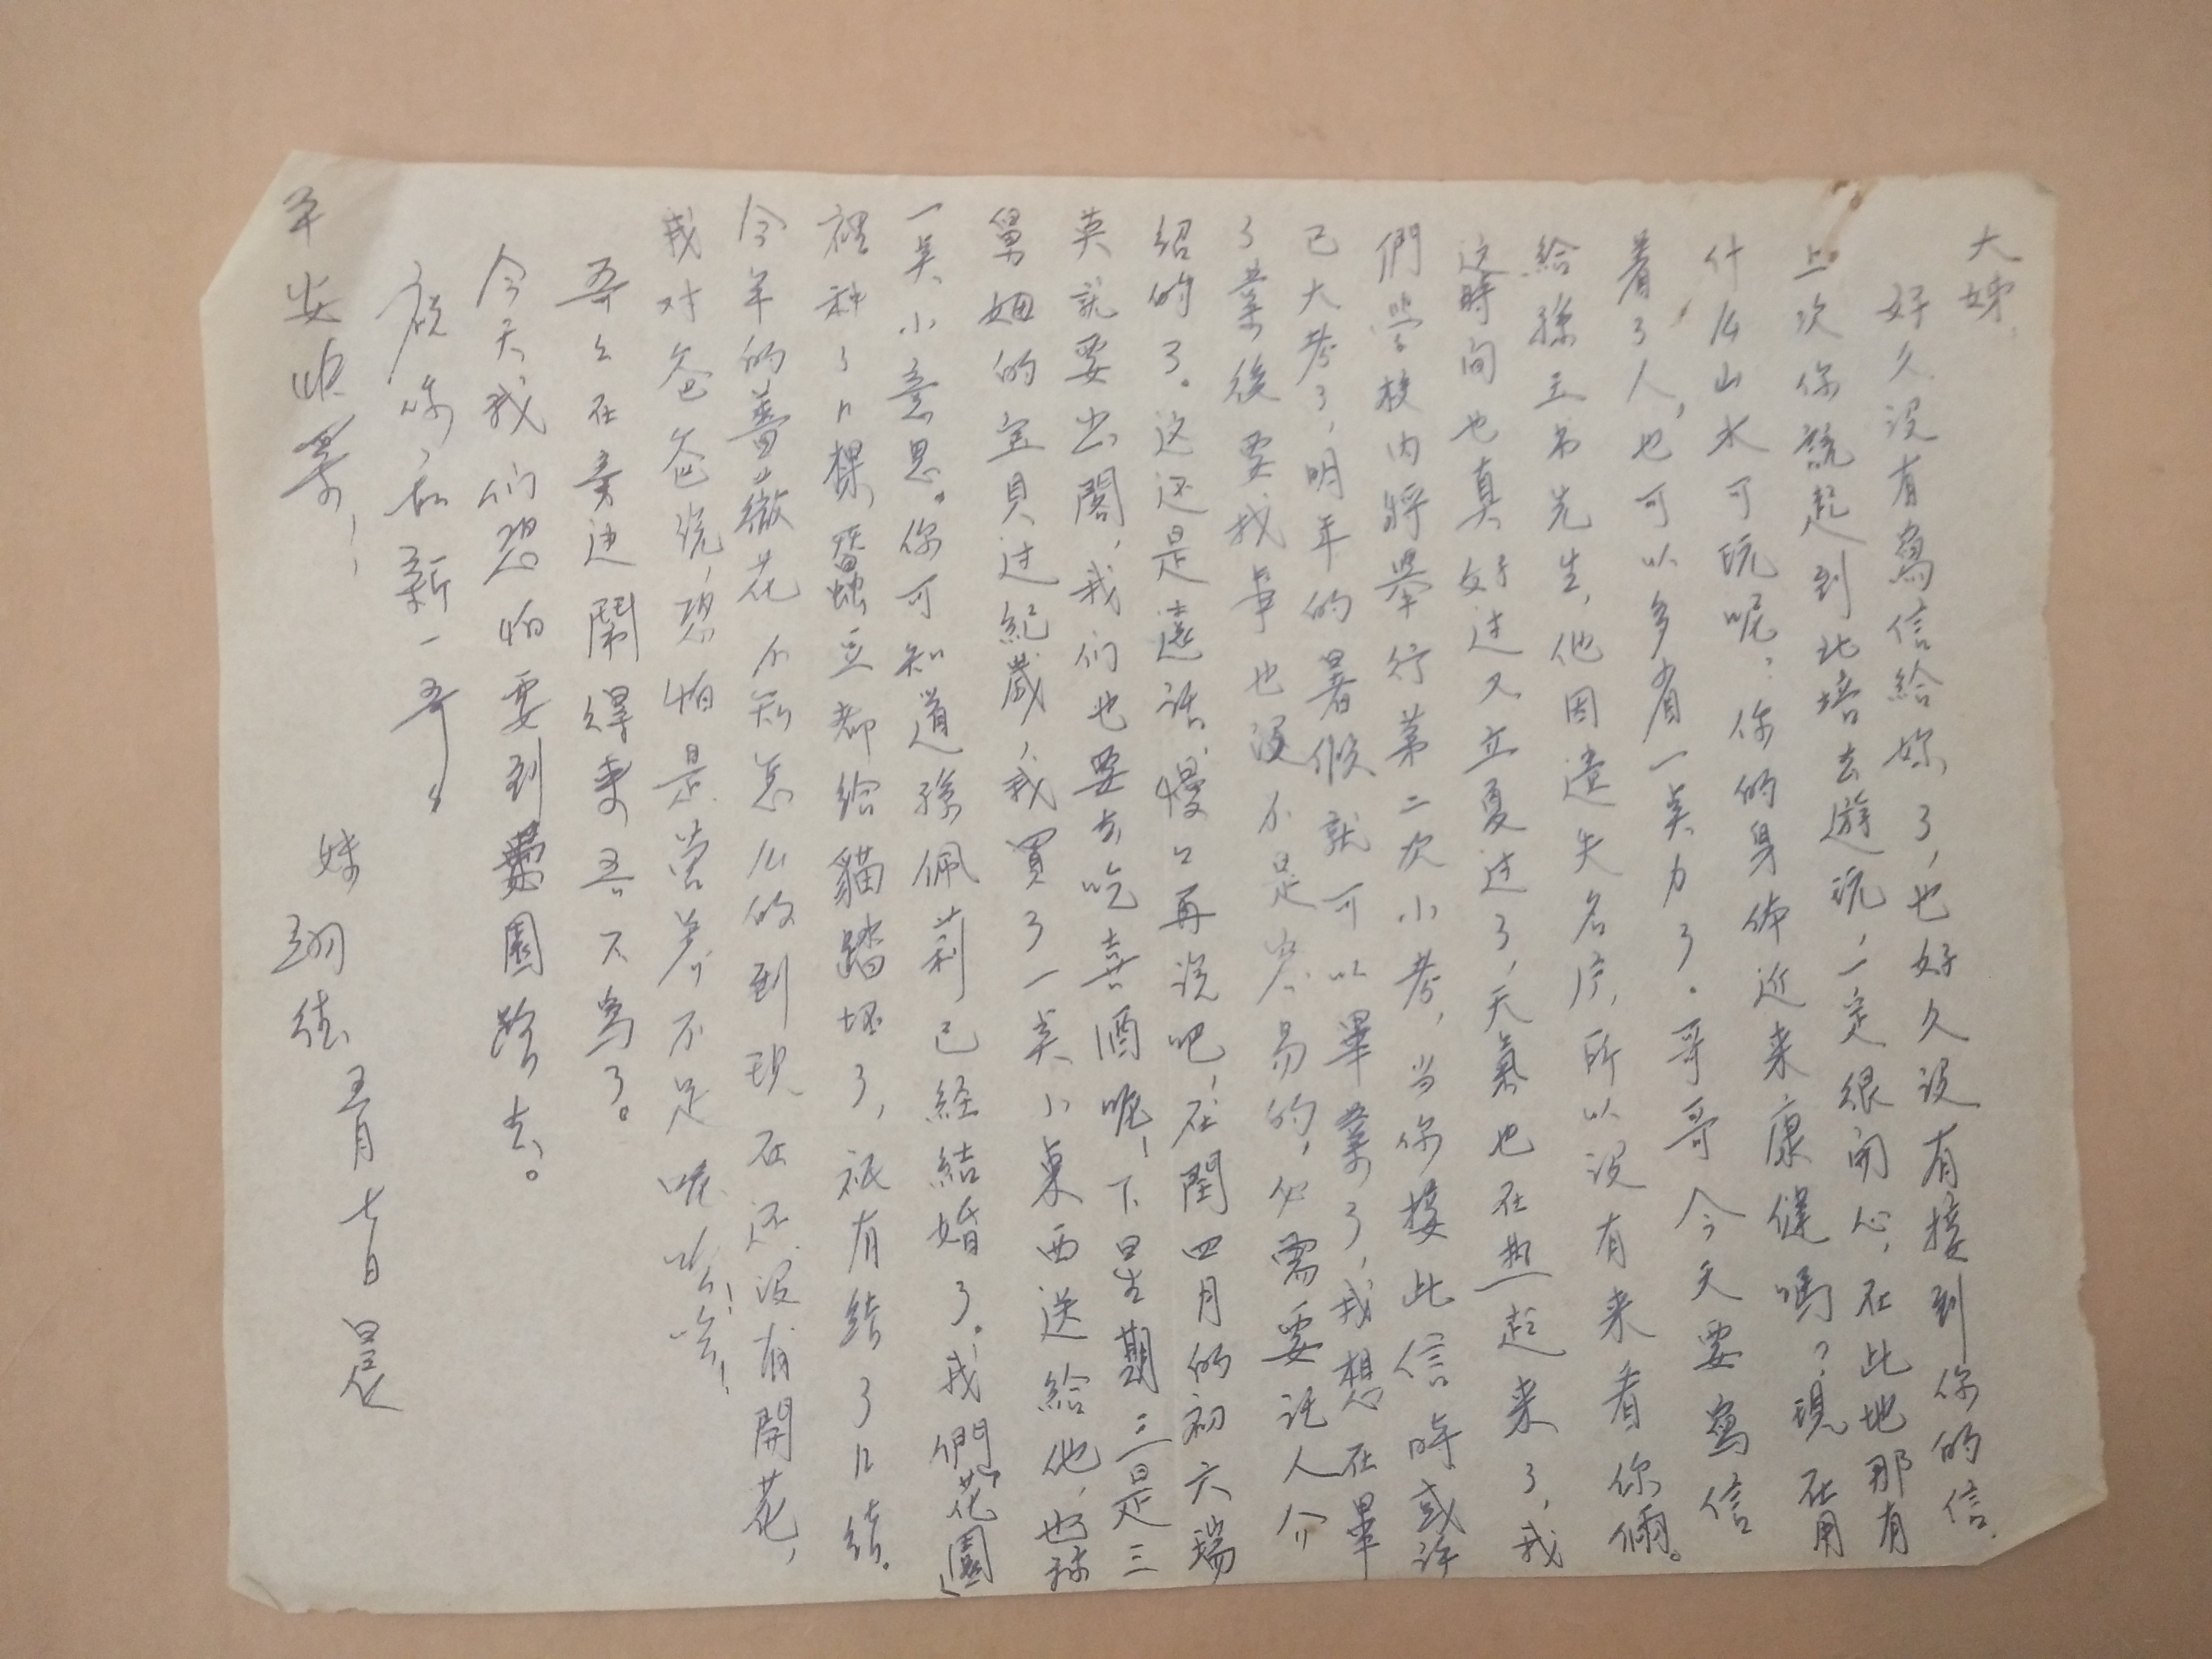 大姊:
好久没有寫信給妳了,也好久没有接到你的信,
上次你說起到北培去遊玩,一定很開心,在此地那有
什么山水可玩呢?你的身体近来康健嗎?現在用
着了人,也可以多省一点力了。哥哥今天要寫信
給孫玉书先生,他因遺失名片,所以没有来看你倆。
这時间也真好过又立夏过了,天氣也在熱起来了,我
們學校内將舉行第二次小考,当你接此信時或许
已大考了,明年的暑假就可以畢業了,我想在畢
了業後要找事也没不是容易的,必需要託人介
绍的了。这还是遠话,慢々再说吧,在閏四月的初六瑞
英就要出閣,我们也要去吃喜酒呢!下星期三是三
舅姆的宝貝过紀歲,我買了一点小東西送給他,也
一点小意思。你可知道孫佩莉已経結婚了。我們「花園」
裡种了几棵蠶豆都給貓踏坏了,祇有结了几结。
今年的薔薇花不知怎么的到現在还没有開花,
我对爸爸说,恐怕是营养不足呢哈!哈!
哥々在旁边鬧得來吾不寫了。
今天我们恐怕要到園珍去。
祝你,和新一哥。
平安快楽!!
妹 珊 佳 五月七日晨